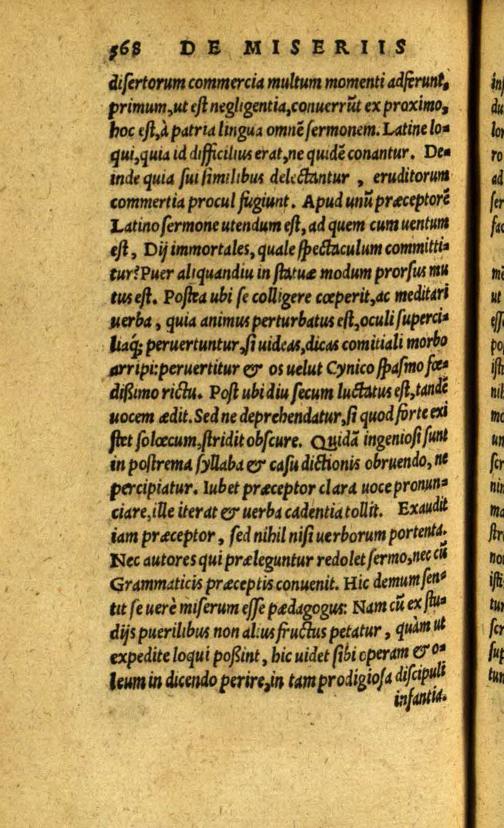 368 DE MISERIIS
disertorum commercia multum momenti adferunt,
primum, ut est negligentia, conuerrūt ex proximo,
hoc est, à patria lingua omnē sermonem. Latine lo-
qui, quia id difficilius erat, ne quidē conantur. De-
inde quia sui similibus delectantur, eruditorum
commertia procul fugiunt. Apud unū præceptorē
Latino sermone utendum est, ad quem cum uentum
est, Dij immortales, quale spectaculum committi-
tur? Puer aliquandiu in statuæ modum prorsus mu
tus est. Postea ubi se colligere cœperit, ac meditari
uerba, quia animus perturbatus est, oculi superci-
liaq́; peruertuntur, si uideas, dicas comitiali morbo
arripi: peruertitur & os uelut Cynico spasmo fœ-
dißimo rictu. Post ubi diu secum luctatus est, tandē
uocem ædit. Sed ne deprehendatur, si quod forte exi
stet solœcum, stridit obscure. Quidā ingeniosi sunt
in postrema syllaba & casu dictionis obruendo, ne
percipiatur. Iubet præceptor clara uoce pronun-
ciare, ille iterat & uerba cadentia tollit. Exaudit
iam præceptor, sed nihil nisi uerborum portenta.
Nec autores qui præleguntur redolet sermo, nec cū
Grammaticis præceptis conuenit. Hic demum sen-
tit se uerè miserum esse pædagogus: Nam cū ex stu-
dijs puerilibus non alius fructus petatur, quàm ut
expedite loqui poßint, hic uidet sibi operam & o-
leum in dicendo perire, in tam prodigiosa discipuli
infantia.